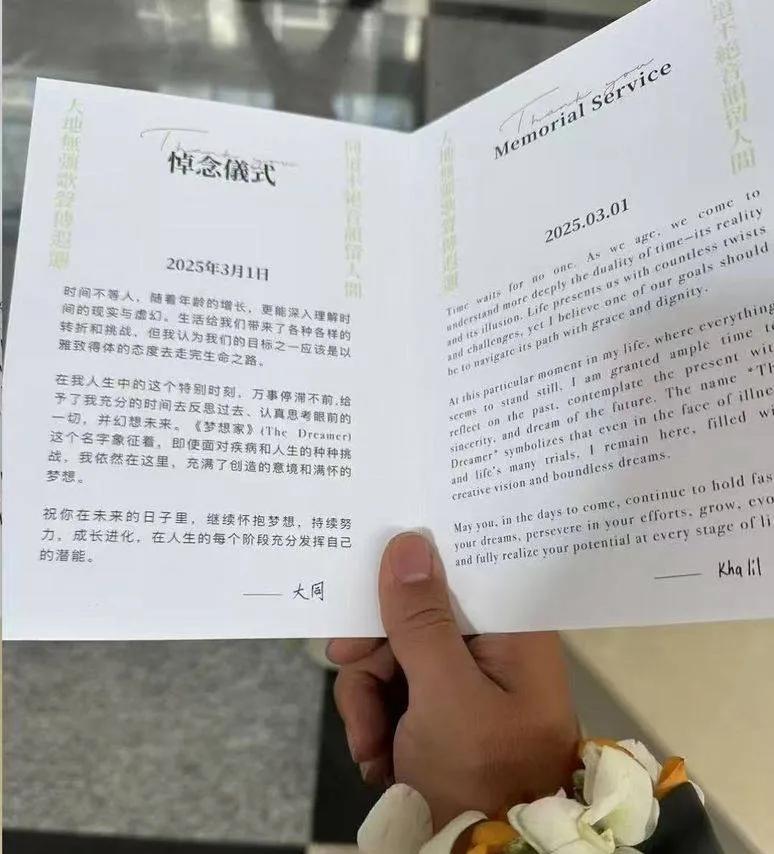 大地無疆歌聲傳遐邇
Thank you
悼念儀式
2025年3月1日
时间不等人，随着年龄的增长，更能深入理解时
间的现实与虚幻。生活给我们带来了各种各样的
转折和挑战，但我认为我们的目标之一应该是以
雅致得体的态度去走完生命之路。
在我人生中的这个特别时刻，万事停滞不前,给
予了我充分的时间去反思过去、认真思考眼前的
一切，并幻想未来。《梦想家》(The Dreamer)
这个名字象征着，即使面对疾病和人生的种种挑
战，我依然在这里，充满了创造的意境和满怀的
梦想。
祝你在未来的日子里，继续怀抱梦想，持续努
力，成长进化，在人生的每个阶段充分发挥自己
的潜能。
—— 大同
不絕音韻留人間
Thank you
Memorial Service
2025.03.01
Time waits for no one. As we age, we come to
understand more deeply the duality of time—its reality
and its illusion. Life presents us with countless twists
and challenges, yet I believe one of our goals should
be to navigate its path with grace and dignity.
At this particular moment in my life, where everything
seems to stand still, I am granted ample time to
reflect on the past, contemplate the present wit
sincerity, and dream of the future. The name *Th
Dreamer* symbolizes that even in the face of illne
and life's many trials, I remain here, filled wi
creative vision and boundless dreams.
May you, in the days to come, continue to hold fas
your dreams, persevere in your efforts, grow, evo
and fully realize your potential at every stage of li
—— Khalil